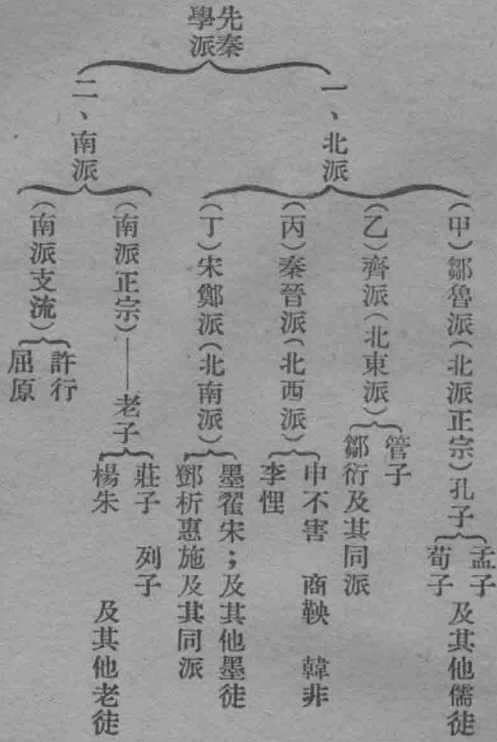 先秦
學派
一、北派
(甲)鄒魯派(北派正宗)孔子
孟子
荀子
及其他儒徒
(乙)齊派(北東派)
管子
鄒衍及其同派
(丙)秦晉派(北西派)
申不害 商鞅 韓非
李悝
(丁)宋鄭派(北南派)
墨翟宋；及其他墨徒
鄧析惠施及其同派
二、南派
(南派正宗)——老子
莊子 列子
楊朱
及其他老徒
(南派支流)
許行
屈原